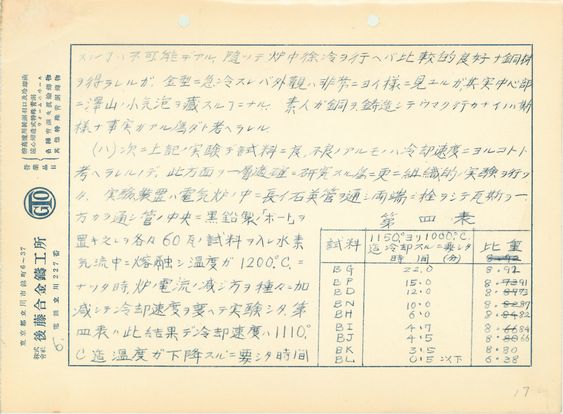 スルコトハ不可能デアル,随ツテ炉中徐冷ヲ行ヘバ比較的良好ナ銅材
ヲ得ラレルガ,金型ニ急冷スレバ外観ハ非常ニヨイ様ニ見エルガ其実中心部
ニ澤山ノ小気泡ヲ蔵スル
素人ガ銅ヲ鋳造シテウマク行カナイハ斯
様ナ事実ガアル為ダト考ヘラレル。
(ハ)次ニ上記ノ実験デ試料ニ良,不良ノアルモノハ冷却速度ニヨルコト
考ヘラレルノデ,此方面ヲ一層
研究スル為ニ更ニ組織的ノ実験ヲ行ツ
タ,実験装置ハ電気炉ノ中ニ長イ石英管ヲ通シ両端ニ栓ヲシテ瓦斯ヲ一
方カラ通シ管ノ中央ニ黒鉛製「ボート」ヲ
置キ之レニ各々60瓦ノ試料ヲ入レ水素
気流中ニ熔融シ温度ガ1200℃ニ
ナツタ時炉ノ電流ノ減ジ方ヲ種々ニ加
減シテ冷却速度ヲ変ヘテ実験シタ,第
四表ハ此結果デ冷却速度ハ1110°
C迄温度ガ下降スルニ要シタ時間
第四表
試料 1150°ヨリ1000℃迄冷却スルニ要シタ時間(分) 比重
BG 22.0 8.92
BP 15.0 8.91
BD 12.0 8.73
BN 10.0 8.87
BH 6.0 8.82
BI 4.7 8.84
BJ 4.5 8.66
BK 3.5 8.30
BL 0.5以下 6.38
営業品目
各種青銅灰銑鋳物
其他特殊青銅鋳物
GIO
株式会社 後藤合金鑄工所
東京都立川市錦町6~37
電話立川222番
17